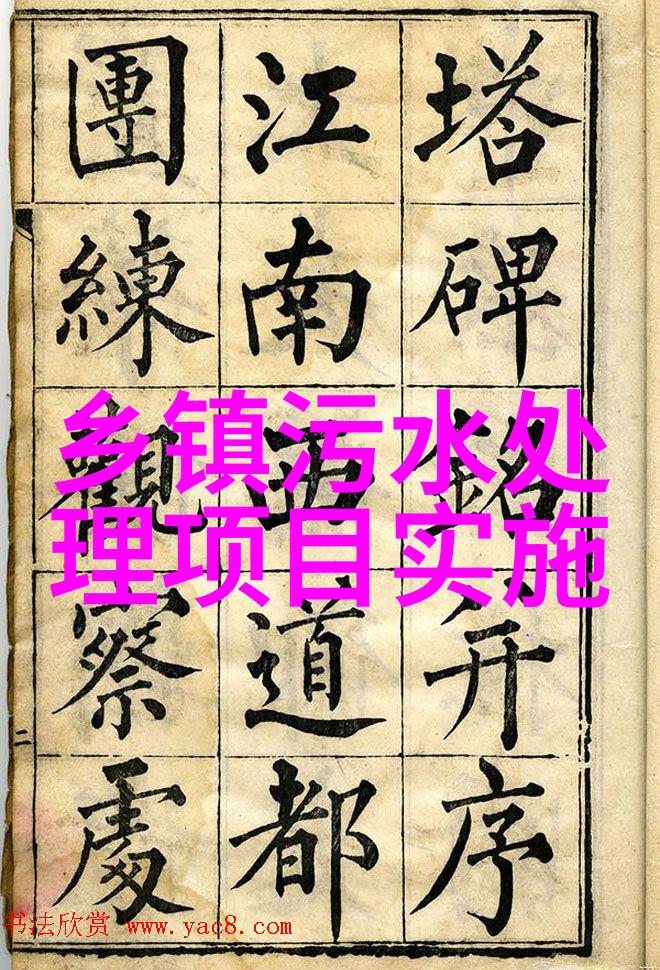 塔碑銘并序
江南西道都
團練觀察處
二
乡镇污水处
理项目实施
书法欣赏 www.yac8.com